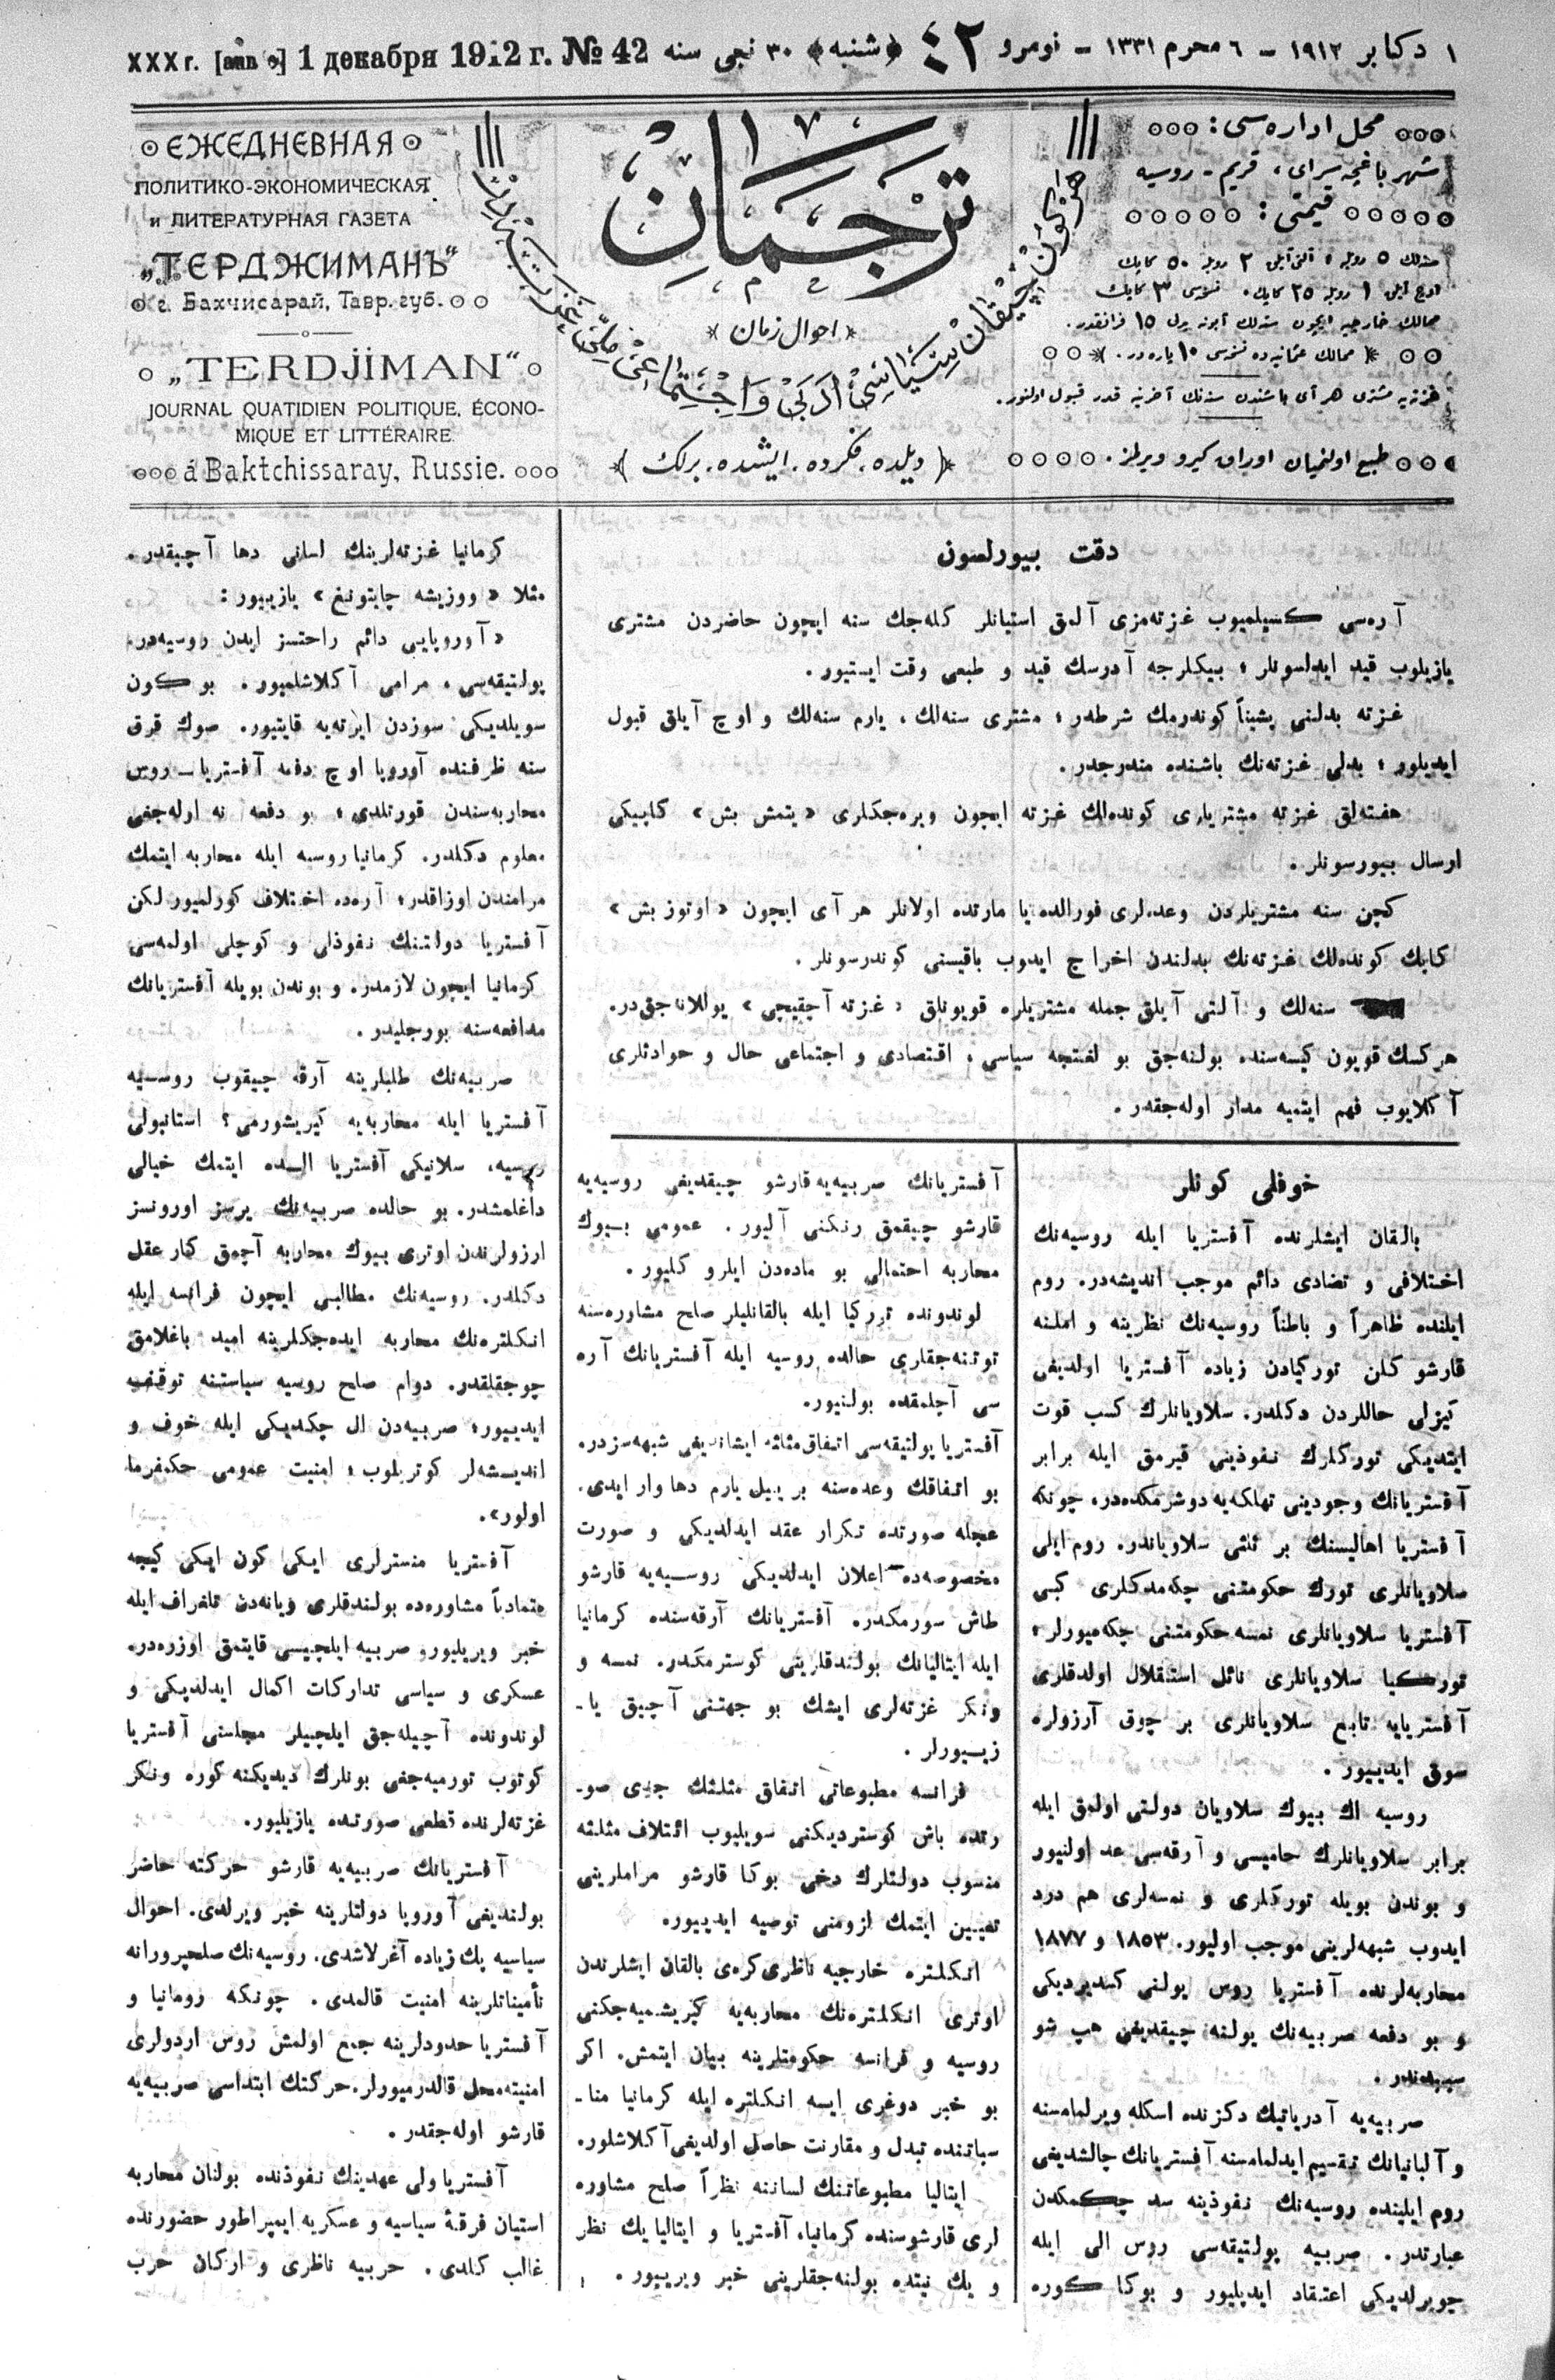 ١ دكابر ١٩١٢ – ٦ محرم ١٣٣١ – نومرو ٤٢ ﴿شنبه﴾ ٣٠ نجی سنه
XXX г. 1 декабря 1912 г. № 42
محل اداره سی:
شهر باغچه سرای، قریم - روسیه
قیمتی:
سنه لك ٥ روبله ؛ آلتی آیلق ٢ روبله ٥٠ كاپك
اوچ آیلق ١ روبله ٢٥ كاپك. نسخه سی ٣ كاپك
ممالك خارجیه ایچون سنه لك آبونه بدل ١٥ فرانقدر.
ممالك عثمانیه ده نسخه سی ١٠ پاره در.
غزته یه مشتری هر آی باشندن سنه نك آخرینه قدر قبول اولنور.
طبع اولنمیان اوراق كیرو ویرلمز.
ترجمان
١٧
احوال زمان
﴿ دیلده. فكرده. ایشده. برلك ﴾
ЕЖЕДНЕВНАЯ
ПОЛИТИКО-ЭКОНОМИЧЕСКАЯ
и ЛИТЕРАТУРНАЯ ГАЗЕТА
„ТЕРДЖИМАНЪ“
г. Бахчисарай, Тавр. губ.
„TERDJÏMAN“
JOURNAL QUATIDIEN POLITIQUE, ÉCONO-
MIQUE ET LITTÉRAIRE
á Baktchissaray, Russie.
دقت بیورلسون
آره سی كسیلمیوب غزته مزی آلمق استیانلر كله جك سنه ایچون حاضردن مشتری
یازیلوب قید ایدلسونلر ؛ بیكلرجه آدرسك قید و طبعی وقت ایستیور.
غزته بدلنی پشیناً كوندرمك شرطدر ؛ مشتری سنه لك ، یارم سنه لك و اوچ آیلق قبول
ایدیلور ؛ بدلی غزته نك باشنده مندرجدر.
هفته لق غزته مشتریلری كونده لك غزته ایچون ویره جكلری «یتمش بش» كاپیكی
ارسال بیورسونلر.
كچن سنه مشتریلردن وعده لری فورالده یا مارتده اولانلر هر آی ایچون «اوتوز بش»
كاپك كونده لك غزته نك بدلندن اخراج ایدوب باقیسنی كوندرسونلر.
سنه لك و آلتی آیلق جمله مشتریلره قویونلق «غزته آچقیچی» یوللانه جق در.
هركسك قویون كیسه سنده بولنه جق بو لغتچه سیاسی ، اقتصادی و اجتماعی حال و حوادثلری
آكلایوب فهم ایتمیه مدار اوله جقدر.
خوفلی كونلر
بالقان ایشلرنده آفستریا ایله روسیه نك
اختلافی و تضادی دائم موجب اندیشه در. روم
ایلنده ظاهراً و باطناً روسیه نك نظرینه و املنه
قارشو كلن توركیادن زیاده آفستریا اولدیغی
كیزلی حاللردن دكلدر. سلاویانلرك كسب قوت
ایتدیكی توركلرك نفوذینی قیرمق ایله برابر
آفستریانك وجودینی تهلكه یه دوشرمكده در، چونكه
آفستریا اهالیسنك بر ثلثی سلاویاندر. روم ایلی
سلاویانلری تورك حكومتنی چكمدكلری كبی
آفستریا سلاویانلری نمسه حكومتنی چكه میورلر ؛
توركیا سلاویانلری نائل استقلال اولدقلری
آفستریایه تابع سلاویانلری بر چوق آرزولره
سوق ایدییور.
روسیه اك بیوك سلاویان دولتی اولمق ایله
برابر سلاویانلرك حامیسی و آرقه سی عد اولنیور
و بوندن بویله توركلری و نمسه لری هم درد
ایدوب شبهه لرینی موجب اولیور. ١٨٥٣ و ١٨٧٧
محاربه لرنده آفستریا روس یولنی كسدیردیكی
و بو دفعه صربیه نك یولنه چیقدیغی هپ شو
سببدندر.
صربیه یه آدریاتیك دكزنده اسكله ویرلمامسنه
و آلبانیانك تقسیم ایدلمامسنه آفستریانك چالشدیغی
روم ایلینده روسیه نك نفوذینه سد چكمكدن
عبارتدر. صربیه پولتیقه سی روس الی ایله
چویرلدیكی اعتقاد ایدیلیور و بوكا كوره
آفستریانك صربیه یه قارشو چیقدیغی روسیه یه
قارشو چیقمق رنكنی آلیور. عمومی بیوك
محاربه احتمالی بو ماده دن ایلرو كلیور.
لوندونده تورركیا ایله بالقانلیلر صلح مشاوره سنه
توتنه جقلری حالده روسیه ایله آفستریانك آره
سی آچلمقده بولنیور.
آفستریا پولتیقه سی اتفاق مثلثه ایشاندیغی شبهه سزدر.
بو اتفاقك وعده سنه بر ییل یارم دها وار ایدی.
عجله صورتده تكرار عقد ایدلدیكی و صورت
مخصوصه ده اعلان ایدلدیكی روسیه یه قارشو
طاش سورمكدر. آفستریانك آرقه سنده كرمانیا
ایله ایتالیانك بولندقلرینی كوسترمكدر. نمسه و
ونكر غزته لری ایشك بو جهتنی آچیق یا-
زییورلر.
فرانسه مطبوعاتی اتفاق مثلثك جدی صو-
رتده باش كوستردیكنی سویلیوب ائتلاف مثلثه
منسوب دولتلرك دخی بوكا قارشو مراملرینی
تعیین ایتمك لزومنی توصیه ایدییور.
انكلتره خارجیه ناظری كره ی بالقان ایشلرندن
اوتری انكلتره نك محاربه یه كیریشمیه جكنی
روسیه و فرانسه حكومتلرینه بیان ایتمش. اكر
بو خبر دوغری ایسه انكلتره ایله كرمانیا منا-
سباتنده تبدل و مقارنت حاصل اولدیغی آكلاشلور.
ایتالیا مطبوعاتنك لساننه نظراً صلح مشاوره
لری قارشوسنده كرمانیا، آفستریا و ایتالیا یك نظر
و یك نیتده بولنه جقلرینی خبر ویرییور.
كرمانیا غزته لرینك لسانی دها آچیقدر.
مثلا «ووزیشه چایتونغ» یازییور:
«آوروپایی دائم راحتسز ایدن روسیه در.
پولتیقه سی ، مرامی آكلاشلمیور. بو كون
سویلدیكی سوزدن ایرته یه قایتیور. صوك قرق
سنه ظرفنده آوروپا اوچ دفعه آفستریا - روس
محاربه سندن قورتلدی ؛ بو دفعه نه اوله جغی
معلوم دكلدر. كرمانیا روسیه ایله محاربه ایتمك
مرامندن اوزاقدر ؛ آره ده اختلاف كورلمیور لكن
آفستریا دولتنك نفوذلی و كوچلی اولمه سی
كرمانیا ایچون لازمدر. و بوندن بویله آفستریانك
مدافعه سنه بورجلیدر.
صربیه نك طلبلرینه آرقه چیقوب روسیه
آفستریا ایله محاربه یه كیریشورمی؟ استانبولی
روسیه، سلانیكی آفستریا الده ایتمك خیالی
داغلمشدر. بو حالده صربیه نك یرسز اورونسز
ارزولرندن اوتری بیوك محاربه آچمق كار عقل
دكلدر. روسیه نك مطالبی ایچون فرانسه ایله
انكلتره نك محاربه ایده جكلرینه امید باغلامق
چوجقلقدر. دوام صلح روسیه سیاستنه توقف
ایدییور ؛ صربیه دن ال چكدیكی ایله خوف و
اندیشه لر كوتریلوب ؛ امنیت عمومی حكمفرما
اولور».
آفستریا منسترلری ایكی كون ایكی كیجه
متمادیاً مشاوره ده بولندقلری ویانه دن تلغراف ایله
خبر ویریلیور. صربیه ایلچیسی قایتمق اوزره در.
عسكری و سیاسی تداركات اكمال ایدلدیكی و
لوندونده آچیله جق ایلچیلر مجلسنی آفستریا
كوتوب تورمیه جغی بونلرك دیدیكنه كوره ونكر
غزته لرنده قطعی صورتده یازیلیور.
آفستریانك صربیه یه قارشو حركته حاضر
بولندیغی آوروپا دولتلرینه خبر ویرلدی. احوال
سیاسیه پك زیاده آغرلاشدی. روسیه نك صلحپرورانه
تأمیناتلرینه امنیت قالمدی. چونكه رومانیا و
آفستریا حدودلرینه جمع اولمش روس اردولری
امنیته محل قالدرمیورلر. حركتك ابتداسی صربیه یه
قارشو اوله جقدر.
آفستریا ولی عهدینك نفوذنده بولنان محاربه
استیان فرقهٔ سیاسیه و عسكریه ایمپراطور حضورنده
غالب كلدی. حربیه ناظری و اركان حرب